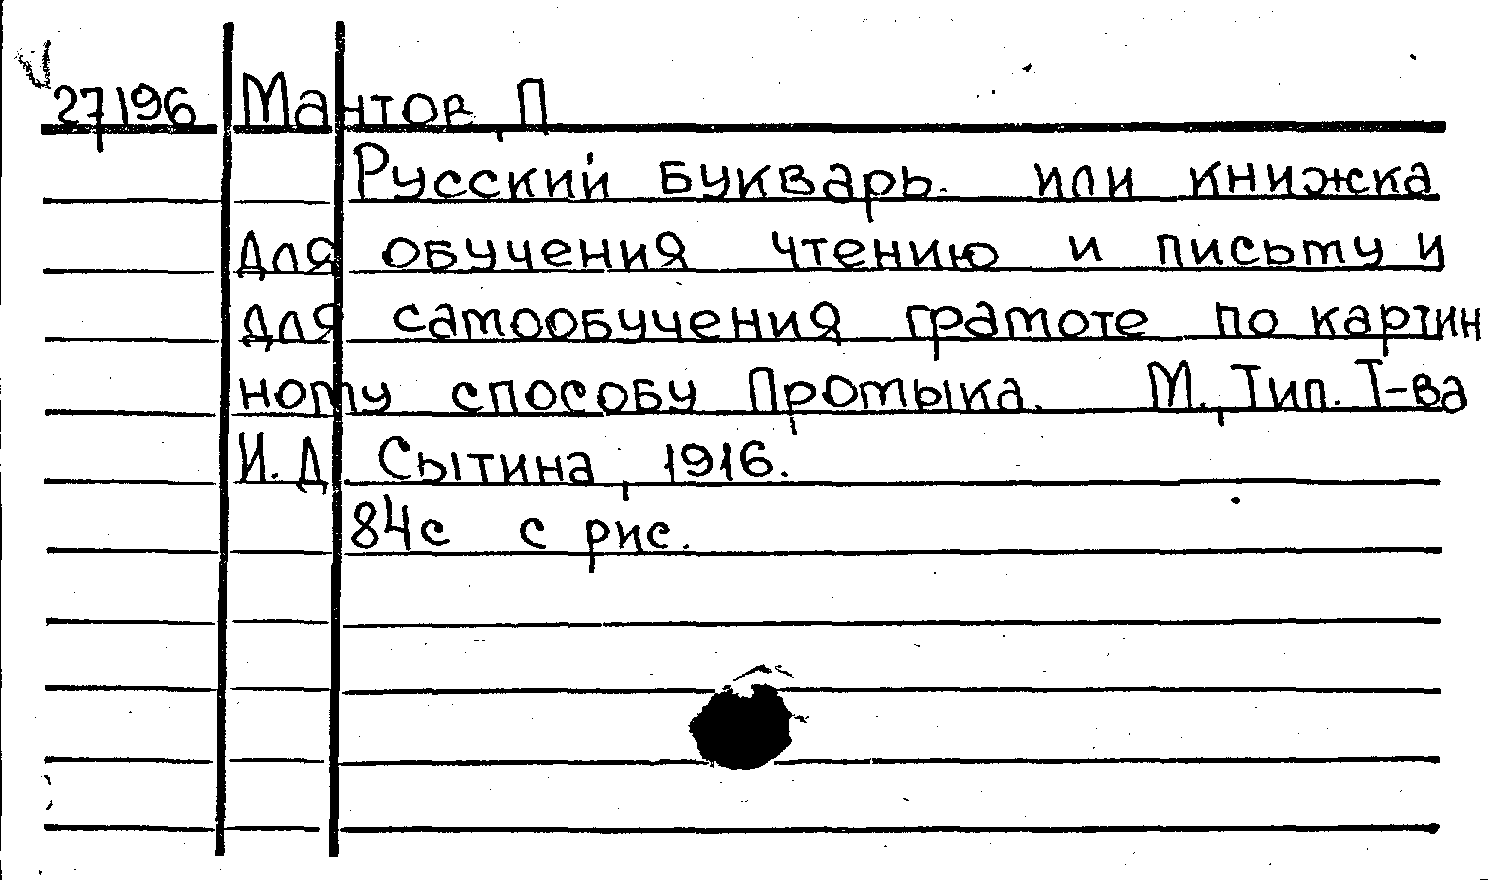 27196 Мантов, П
Русский букварь. или книжка
для обучения чтению и письму и
для самообучения грамоте по картин
ному способу Промыка. М., Тип. Т-ва
И. Д. Сытина, 1916.
84с с рис.